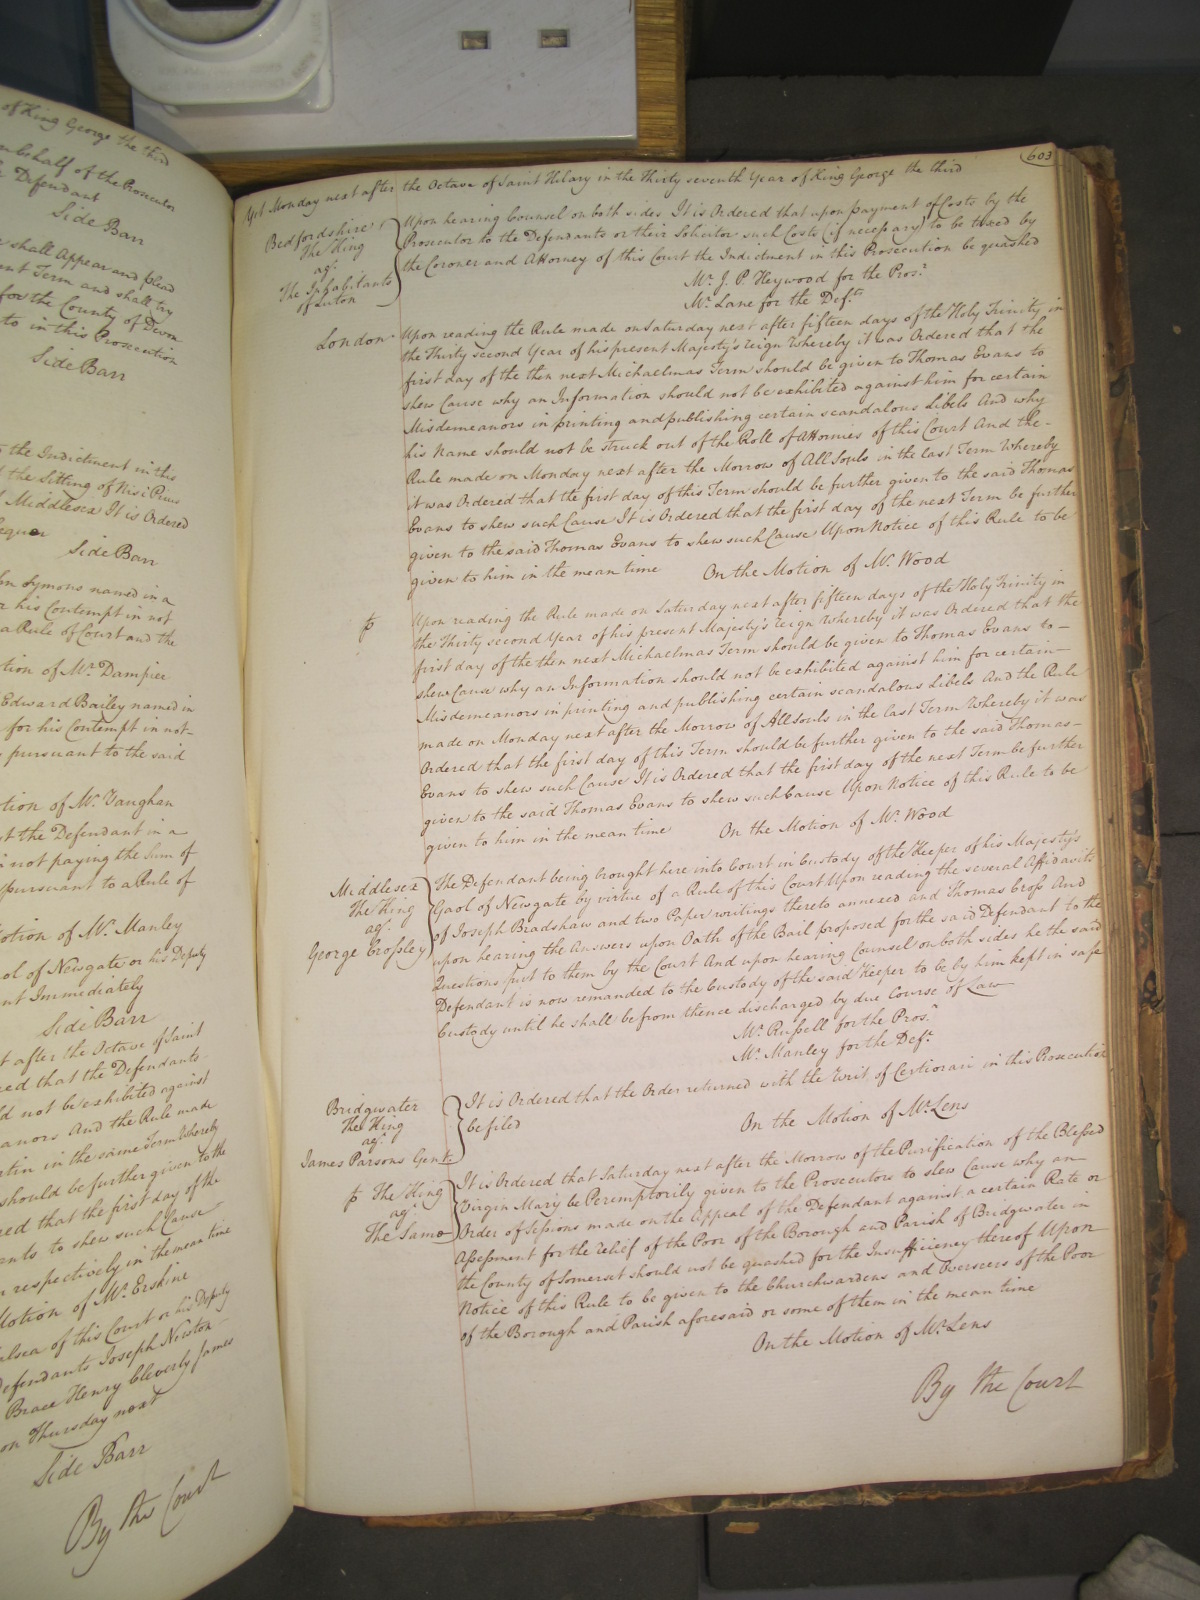 of King George the third
behalf of the Prosecutor
Defendant
Side Barr
shall Appear and plead
Term and shall try
for the County of Devon
to in this Prosecution
Side Barr
the Indictment in this
the Sitting of Nisi Prius
Middlesex It is Ordered
Side Barr
Symons named in a
his Contempt in not
a Rule of Court and the
of Mr. Dampier
Edward Bailey named in
for his Contempt in not
pursuant to the said
of Mr. Vaughan
the Defendant in a
not paying the Sum of
pursuant to a Rule of
of Mr. Manley
of Newgate or his Deputy
Immediately
Side Barr
after the Octave of Saint
that the Defendants
not be exhibited against
And the Rule made
in the same Term Whereby
should be further given to the
that the first day of the
to shew such Cause
respectively in the mean time
of Mr. Erskine
of this Court or his Deputy
Defendants Joseph Newton
Brace Henry Cleverly James
on Thursday next
Side Barr
By the Court
603
Yet Monday next after the Octave of Saint Hilary in the Thirty seventh Year of King George the third
Bedfordshire
The King
agt.
The Inhabitants
of Luton
Upon hearing Counsel on both sides It is Ordered that upon payment of Costs by the
Prosecutor to the Defendants or their Solicitor such Costs (if necessary) to be taxed by
the Coroner and Attorney of this Court the Indictment in this Prosecution be quashed
Mr. J. P. Heywood for the Prosr.
Mr. Lane for the Defts.
London
Upon reading the Rule made on Saturday next after fifteen days of the Holy Trinity in
the Thirty second Year of his present Majesty's reign Whereby it was Ordered that the
first day of the then next Michaelmas Term should be given to Thomas Evans to
shew Cause why an Information should not be exhibited against him for certain
Misdemeanors in printing and publishing certain scandalous Libels And why
his Name should not be struck out of the Roll of Attornies of this Court And the
Rule made on Monday next after the Morrow of All Souls in the last Term Whereby
it was Ordered that the first day of this Term should be further given to the said Thomas
Evans to shew such Cause It is Ordered that the first day of the next Term be further
given to the said Thomas Evans to shew such Cause Upon Notice of this Rule to be
given to him in the mean time On the Motion of Mr. Wood
Upon reading the Rule made on Saturday next after fifteen days of the Holy Trinity in
the Thirty second Year of his present Majesty's reign Whereby it was Ordered that the
first day of the then next Michaelmas Term should be given to Thomas Evans to
shew Cause why an Information should not be exhibited against him for certain
Misdemeanors in printing and publishing certain scandalous Libels And the Rule
made on Monday next after the Morrow of All Souls in the last Term Whereby it was
Ordered that the first day of this Term should be further given to the said Thomas
Evans to shew such Cause It is Ordered that the first day of the next Term be further
given to the said Thomas Evans to shew such Cause Upon Notice of this Rule to be
given to him in the mean time On the Motion of Mr. Wood
Middlesex
The King
agt.
George Crossley
The Defendant being brought here into Court in Custody of the Keeper of his Majesty's
Gaol of Newgate by virtue of a Rule of this Court Upon reading the several Affidavits
of Joseph Bradshaw and two Paper writings thereto annexed and Thomas Cross And
upon hearing the Answers upon Oath of the Bail proposed for the said Defendant to the
Questions put to them by the Court And upon hearing Counsel on both sides he the said
Defendant is now remanded to the Custody of the said Keeper to be by him kept in safe
Custody until he shall be from thence discharged by due Course of Law
Mr. Russell for the Prosr.
Mr. Manley for the Deft.
Bridgwater
The King
agt.
James Parsons Gent.
It is Ordered that the Order returned with the Writ of Certiorari in this Prosecution
be filed On the Motion of Mr. Lens
The King
agt.
The Same
It is Ordered that Saturday next after the Morrow of the Purification of the Blessed
Virgin Mary be Peremptorily given to the Prosecutors to shew Cause why an
Order of Sessions made on the Appeal of the Defendant against a certain Rate or
Assessment for the relief of the Poor of the Borough and Parish of Bridgwater in
the County of Somerset should not be quashed for the Insufficiency thereof Upon
Notice of this Rule to be given to the Churchwardens and Overseers of the Poor
of the Borough and Parish aforesaid or some of them in the mean time
On the Motion of Mr. Lens
By the Court